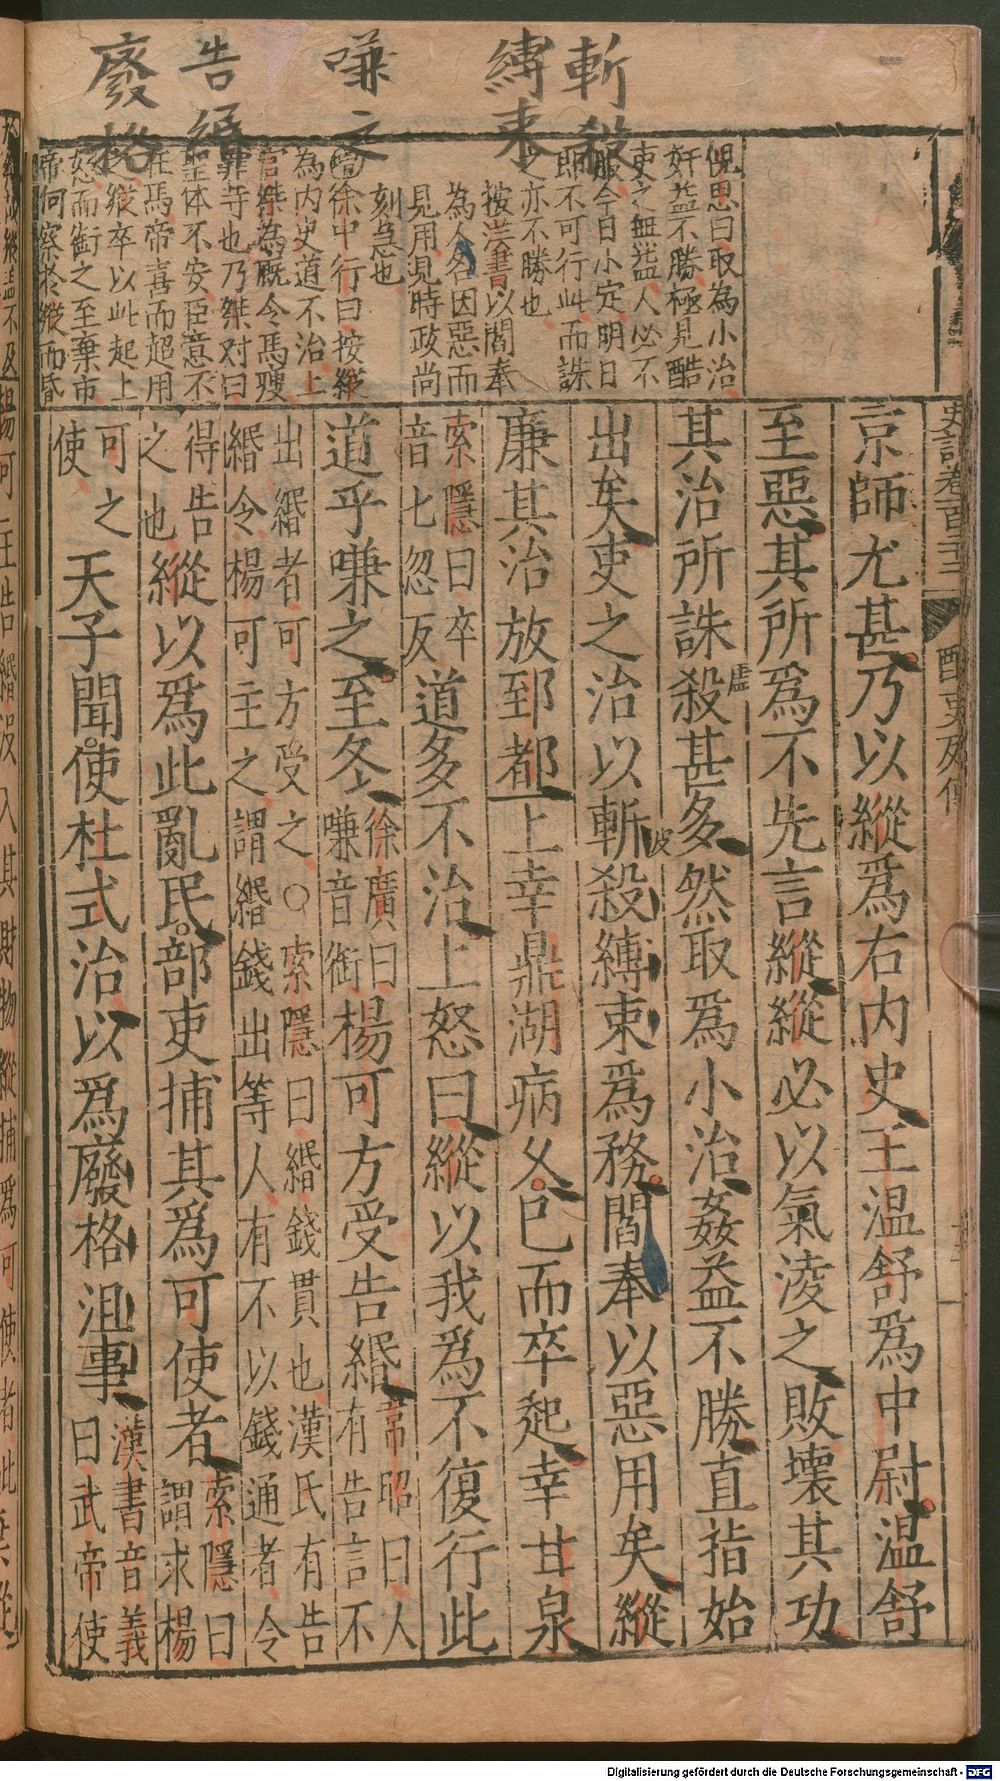 斬殺
縛束
嗛之
告緡
廢格
倪思曰取為小治
奸益不勝極見酷
吏之無益人必不
服今日小定明日
即不可行此而誅
之亦不勝也
按漢書以閻奉
為人名因惡而
見用見時政尚
刻急也
徐中行曰按縱
為内史道不治上
官桀為厩令馬瘦
罪寺也乃桀对曰
聖体不安臣意不
在馬帝喜而超用
之縱卒以此起上
怒而銜之至棄市
帝何察於縱而昏
史記卷百二十二
酷吏列傳
京師尤甚乃以縱爲右内史王温舒爲中尉温舒
至惡其所爲不先言縱縱必以氣淩之敗壊其功
其治所誅殺甚多然取爲小治姦益不勝直指始
出矣吏之治以斬殺縛束爲務閻奉以惡用矣縱
廉其治放郅都上幸鼎湖病久已而卒起幸甘泉
索隱曰卒
音七忽反
道多不治上怒曰縱以我爲不復行此
道乎嗛之至冬
徐廣曰
嗛音銜
楊可方受告緡
韋昭曰人
有告言不
出緡者可方受之○索隱曰緡錢貫也漢氏有告
緡令楊可主之謂緡錢出等人有不以錢通者令
得告
之也
縱以爲此亂民部吏捕其爲可使者
索隱曰
謂求楊
可之
使
天子聞使杜式治以爲廢格沮事
漢書音義
曰武帝使
楊可主告緡没入其財物縱捕爲可使者此
Digitalisierung gefördert durch die Deutsche Forschungsgemeinschaft - DFG